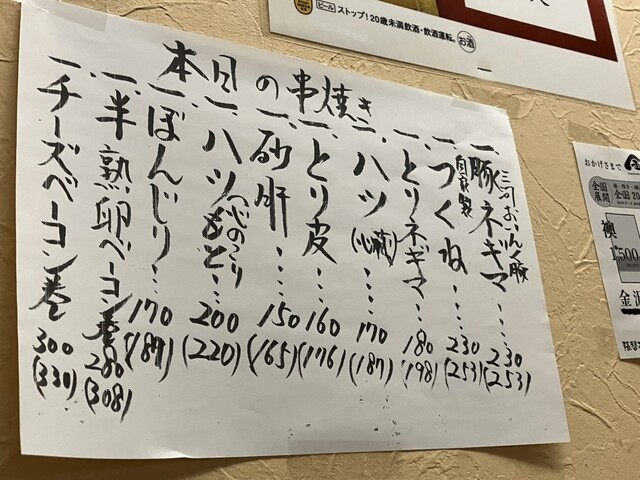 本日の串焼き
一、豚ネギマ…230(253)
三河おいんく豚
一、自家製つくね…230(253)
一、とりネギマ…180(198)
一、ハツ(心臓)…170(187)
一、とり皮…160(176)
一、砂肝…150(165)
一、ハツもと(つなぎのこり)…200(220)
一、ぼんじり…170(187)
一、半熟卵ベーコン巻280(308)
一、チーズベーコン巻300(330)
ビール ストップ!20歳未満飲酒・飲酒運転。 お酒
おかげさまで
全国展開
全国20
襖
1,500
金沢